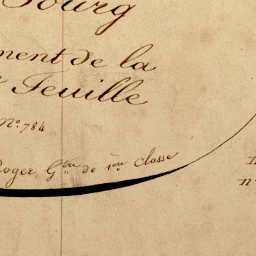 Bourg
ment de la
Feuille
N° 784
Roger, Gtre de 1ere Classe